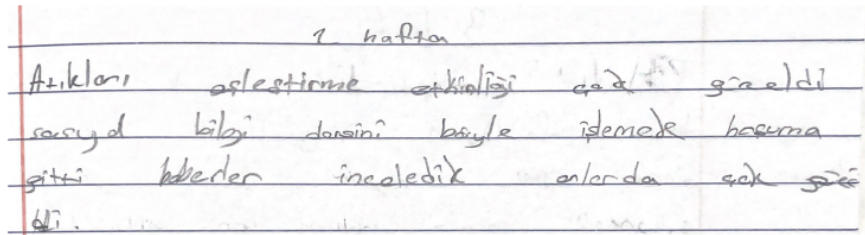 1 hafta
Atıkları eşleştirme etkinliği çok güzeldi
sosyal bilgi dersini böyle işlemek hoşuma
gitti haberler inceledik onlarda çok güze
ldi.